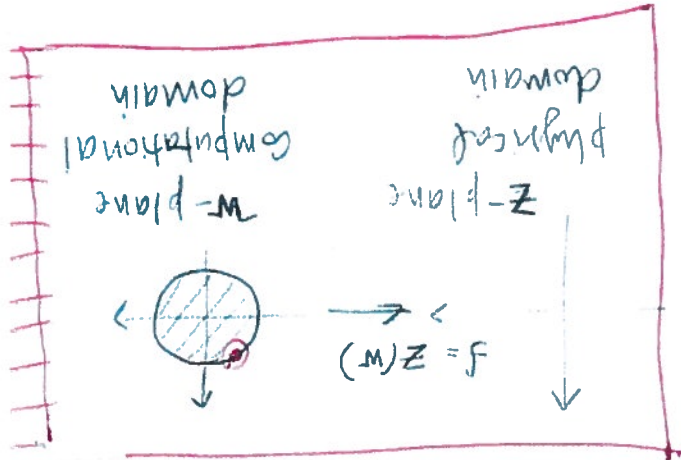 f = z(w)
z-plane
physical
domain
w-plane
computational
domain